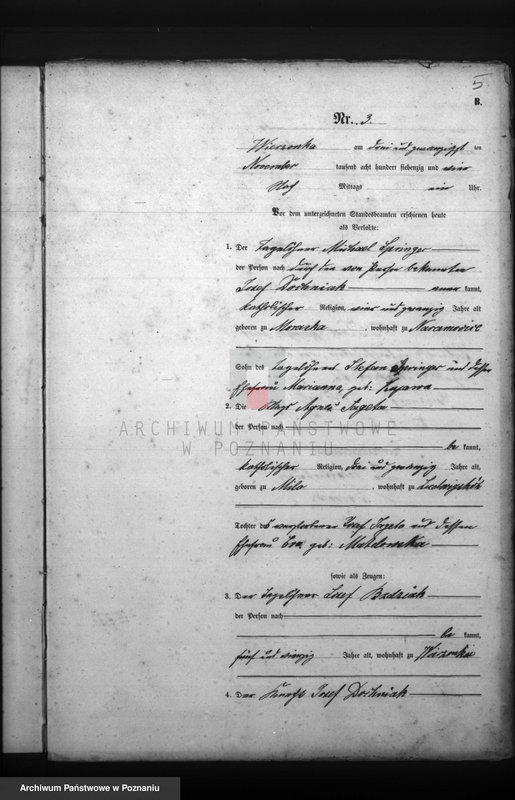 5
B.
Nr. 3.
Wieczonka am drei und zwanzigst ten
November tausend acht hundert siebenzig und vier
Nach Mittags ein Uhr.
Vor dem unterzeichneten Standesbeamten erschienen heute
als Verlobte:
1. Der Tagelöhner Michael Springer
der Person nach durch den von Person bekannten
Josef Dochniak aner kannt,
katholischer Religion, vier und zwanzig Jahre alt
geboren zu Morasko, wohnhaft zu Naramowice
Sohn des Tagelöhners Stefan Springer und dessen
Ehefrau Marianna, geb:
2. Die Magd Agnes
der Person nach
be kannt,
katholischer Religion, drei und zwanzig Jahre alt,
geboren zu Milo, wohnhaft zu Ludwigshöh
Tochter des verstorbenen Josef und dessen
Ehefrau Eva geb:
sowie als Zeugen:
3. Der Tagelöhner Josef Bedziak
der Person nach
be kannt,
fünf und vierzig Jahre alt, wohnhaft zu
4. Der Knecht Josef Dochniak
ARCHIWUM PAŃSTWOWE
W POZNANIU
Archiwum Państwowe w Poznaniu